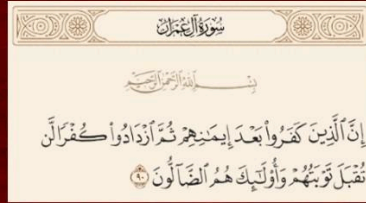 سُورَةُ آلِ عِمْرَانَ
بِسْمِ اللَّهِ الرَّحْمَٰنِ الرَّحِيمِ
إِنَّ ٱلَّذِينَ كَفَرُوا۟ بَعْدَ إِيمَـٰنِهِمْ ثُمَّ ٱزْدَادُوا۟ كُفْرًا لَّن
تُقْبَلَ تَوْبَتُهُمْ وَأُو۟لَـٰٓئِكَ هُمُ ٱلضَّآلُّونَ ٩٠